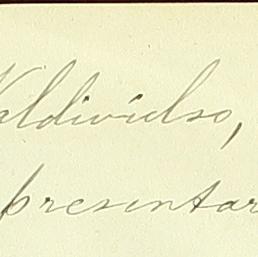 Valdivielso,
presentar